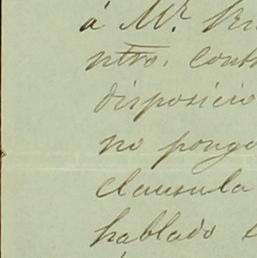 á Mr.
ntro. cont
disposicio
no pongo
clausula
hablado